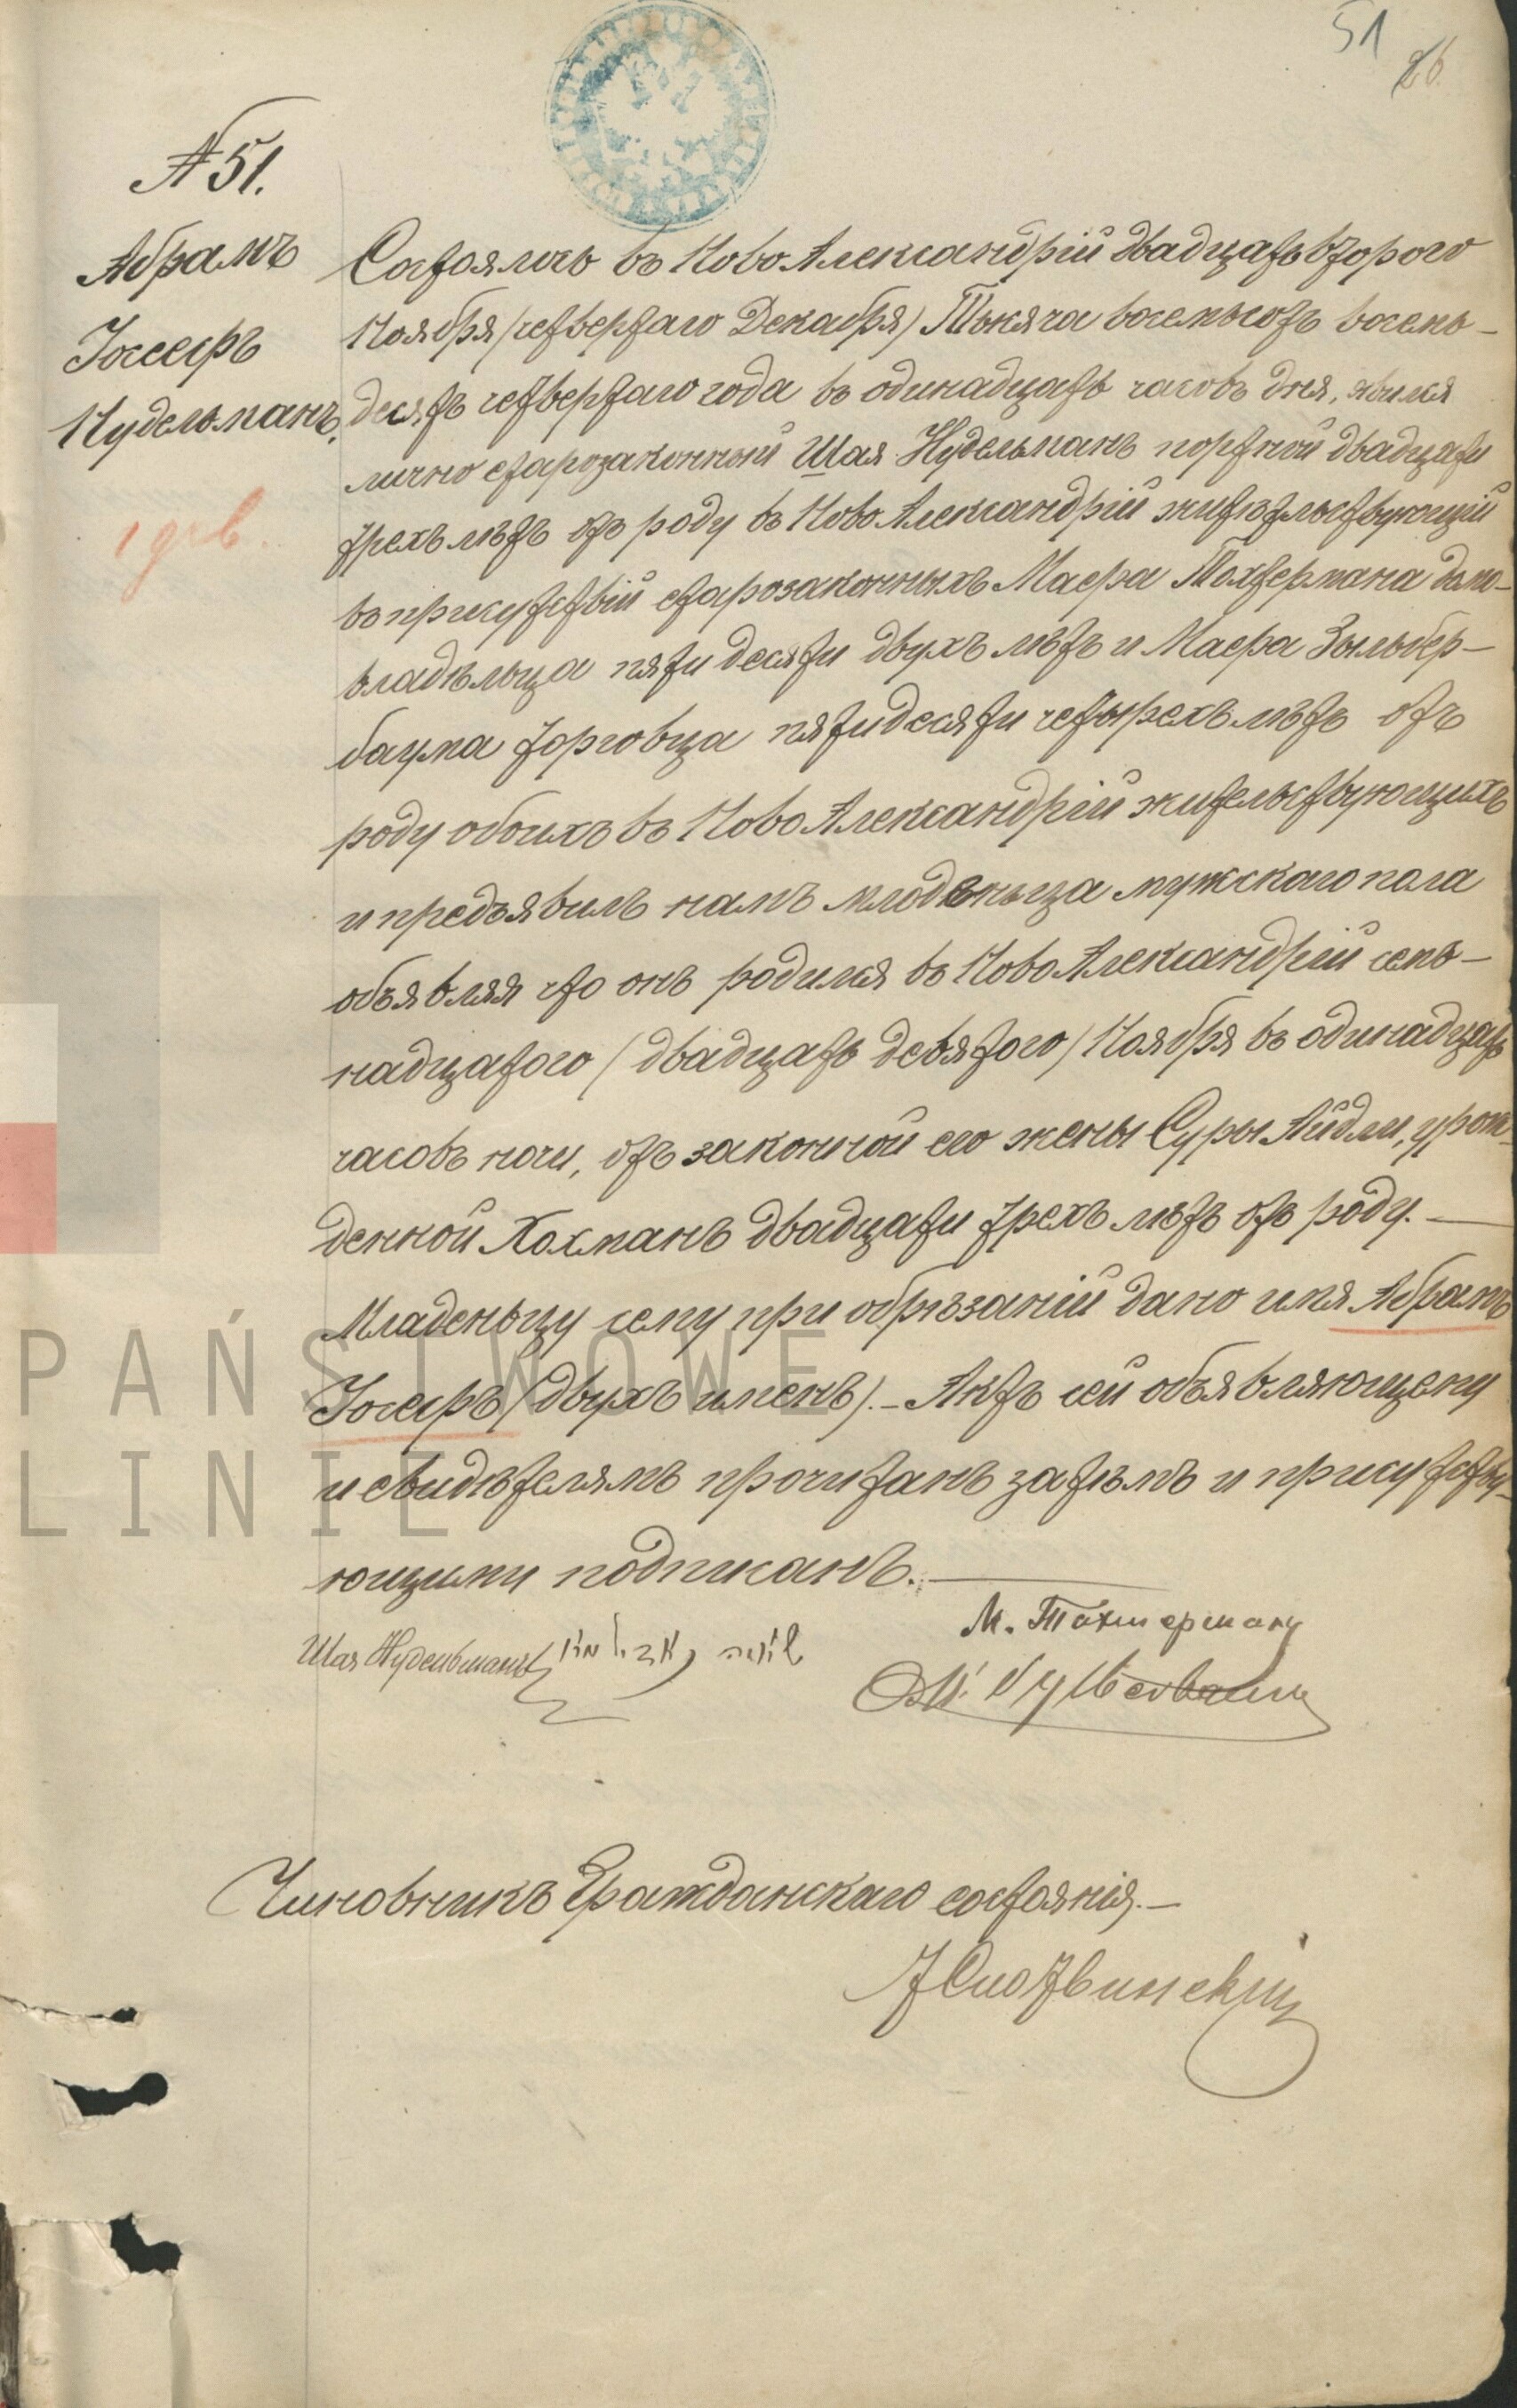 51
26.
№ 51.
Абрамъ
Іосефъ
Нудельманъ.
Состоялось въ Ново Александріи двадцать втораго
Ноября (четвертаго Декабря) Тысяча восемьсотъ восемь-
десятъ четвертаго года въ одинадцать часовъ дня, явился
лично старозаконный Шая Нудельманъ портной двадцати
трехъ лѣтъ отъ роду въ Ново Александріи жительствующій
въ присутствіи старозаконныхъ Маера Тахтермана домо-
владѣльца пятидесяти двухъ лѣтъ и Маера Зыльбер-
баума торговца пятидесяти четырехъ лѣтъ отъ
роду обоихъ въ Ново Александріи жительствующихъ
и предъявилъ намъ младеньца мужскаго пола
объявляя что онъ родился въ Ново Александріи семь-
надцатого (двадцать девятого) Ноября въ одинадцать
часовъ ночи, отъ законной его жены Суры Айдли, урож-
денной Хохманъ двадцати трехъ лѣтъ отъ роду. —
Младеньцу сему при обрѣзаніи дано имя Абрамъ
Іосефъ (двухъ именъ). – Актъ сей объявляющему
и свидѣтелямъ прочитанъ затѣмъ и присутству-
ющими подписанъ. —
М. Тахтерманъ
Шая Нудельманъ
Чиновникъ Гражданскаго состоянія. —
PAŃSTWOWE
LINIE